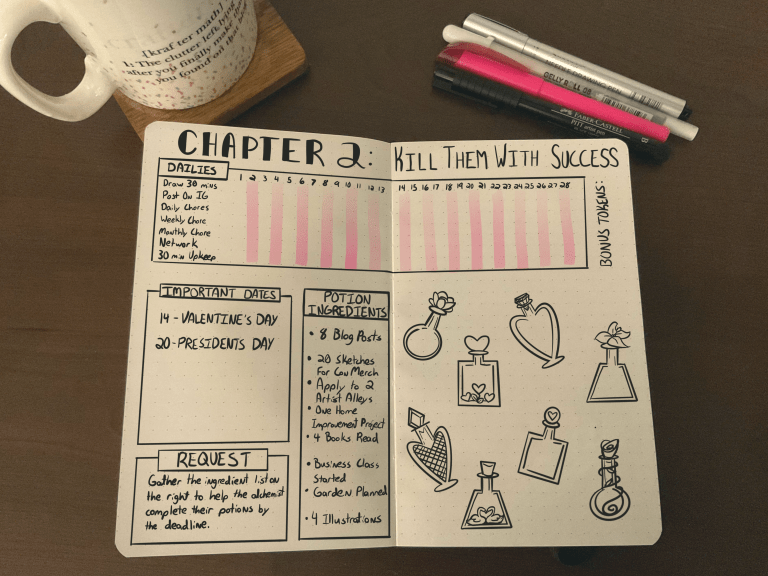 {kraf·ter math}
1: The clutter left lying
after you finally make the
you found on that
CHAPTER 2: KILL THEM WITH SUCCESS
DAILIES
1 2 3 4 5 6 7 8 9 10 11 12 13 14 15 16 17 18 19 20 21 22 23 24 25 26 27 28
Draw 30 mins
Post On IG
Daily Chores
Weekly Chore
Monthly Chore
Network
30 min Upkeep
BONUS TOKENS:
IMPORTANT DATES
14 - VALENTINE'S DAY
20 - PRESIDENTS DAY
REQUEST
Gather the ingredient list on
the right to help the alchemist
complete their potions by
the deadline.
POTION
INGREDIENTS
• 8 Blog Posts
• 20 Sketches
For Con Merch
• Apply to 2
Artist Alleys
• One Home
Improvement Project
• 4 Books Read
• Business Class
Started
• Garden Planned
• 4 Illustrations
GELLY ROLL 08
FABER-CASTELL
PITT artist pen
B